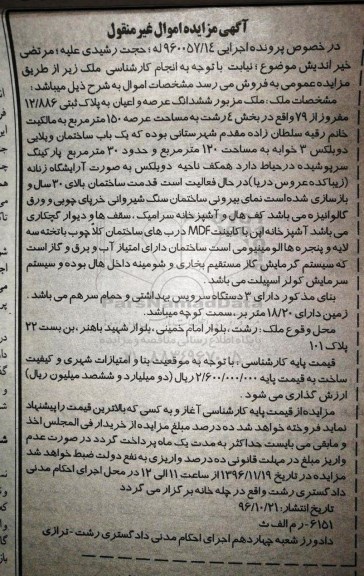 آگهی مزایده اموال غیر منقول
در خصوص پرونده اجرایی ۹۶۰۰۵۷/۱۴ له ؛ حجت رشیدی علیه ؛ مرتضی
خیر اندیش موضوع ؛ نیابت با توجه به انجام کارشناسی ملک زیر از طریق
مزایده عمومی به فروش می رسد مشخصات اموال به شرح ذیل میباشد؛
مشخصات ملک؛ ملک مزبور ششدانگ عرصه و اعیان به پلاک ثبتی ۱۲/۸۸۶
مفروز از ۷۹ واقع در بخش ۴ رشت به مساحت عرصه ۱۵۰ مترمربع به مالکیت
خانم رقیه سلطان زاده مقدم شهرستانی بوده که یک باب ساختمان ویلایی
دوبلکس ۳ خوابه به مساحت ۱۳۰ مترمربع و حدود ۳۰ مترمربع پارکینگ
سرپوشیده در حیاط دارد همکف ناحیه دوبلکس به صورت آرایشگاه زنانه
(زیباکده عروس دریا) در حال فعالیت است قدمت ساختمان بالای ۳۰ سال و
بازسازی شده است نمای بیرونی ساختمان سنگ شیروانی خرپای چوبی و ورق
گالوانیزه می باشد کف هال و آشپزخانه سرامیک ، سقف ها و دیوار گچکاری
می باشد آشپزخانه اپن با کابینت MDF درب های ساختمان کلا چوب با تخته سه
لایه و پنجره ها آلومینیومی است ساختمان دارای امتیاز آب و برق و گاز است
که سیستم گرمایش گاز مستقیم بخاری و شومینه داخل هال بوده و سیستم
سرمایش کولر اسپیلت می باشد.
بنای مذکور دارای ۳ دستگاه سرویس بهداشتی و حمام سرهم می باشد .
زمین دارای ۱۸/۲۰ متر بر ، سمت کوچه میباشد.
محل وقوع ملک : رشت ، بلوار امام خمینی ، بلوار شهید باهنر ، بن بست ۲۲
پلاک ۱۰۱
قیمت پایه کارشناسی ؛ با توجه به موقعیت بنا و امتیازات شهری و کیفیت
ساخت به قیمت پایه ۲/۶۰۰/۰۰۰/۰۰۰ ریال (دو میلیارد و ششصد میلیون ریال)
ارزش گذاری می شود .
مزایده از قیمت پایه کارشناسی آغاز و به کسی که بالاترین قیمت را پیشنهاد
نماید فروخته خواهد شد ده درصد مبلغ مزایده از خریدار فی المجلس اخذ
و مابقی می بایست حداکثر به مدت یک ماه پرداخت گردد در صورت عدم
واریز مبلغ در مهلت قانونی ده درصد واریزی به نفع دولت ضبط خواهد شد
مزایده در تاریخ ۱۳۹۶/۱۱/۱۹ از ساعت ۱۱ الی ۱۲ در محل اجرای احکام مدنی
دادگستری رشت واقع در چله خانه برگزار می گردد
تاریخ انتشار: ۹۶/۱۰/۲۱
۶۱۵۱- رم الف ث
دادورز شعبه چهاردهم اجرای احکام مدنی دادگستری رشت - ترازی